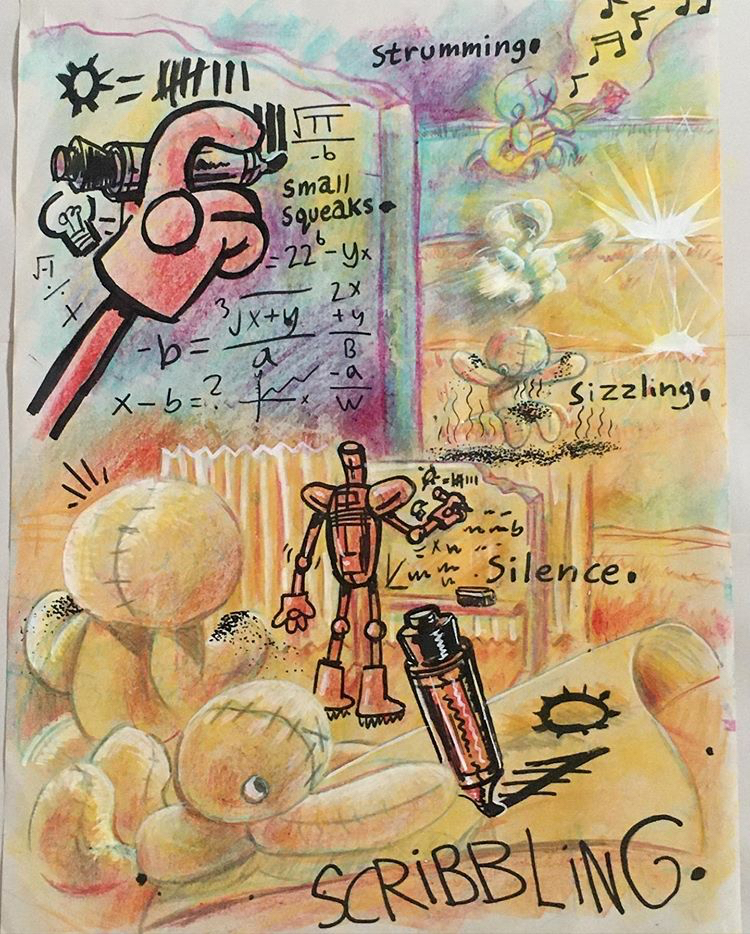 strumming.
√π
-b
small
squeaks.
= 22⁶ - yx
√-1
÷
x
³√x+y
-b = a
2x
+y
B
-a
W
x - b = ?
x
sizzling.
Silence.
SCRiBBLiNG.